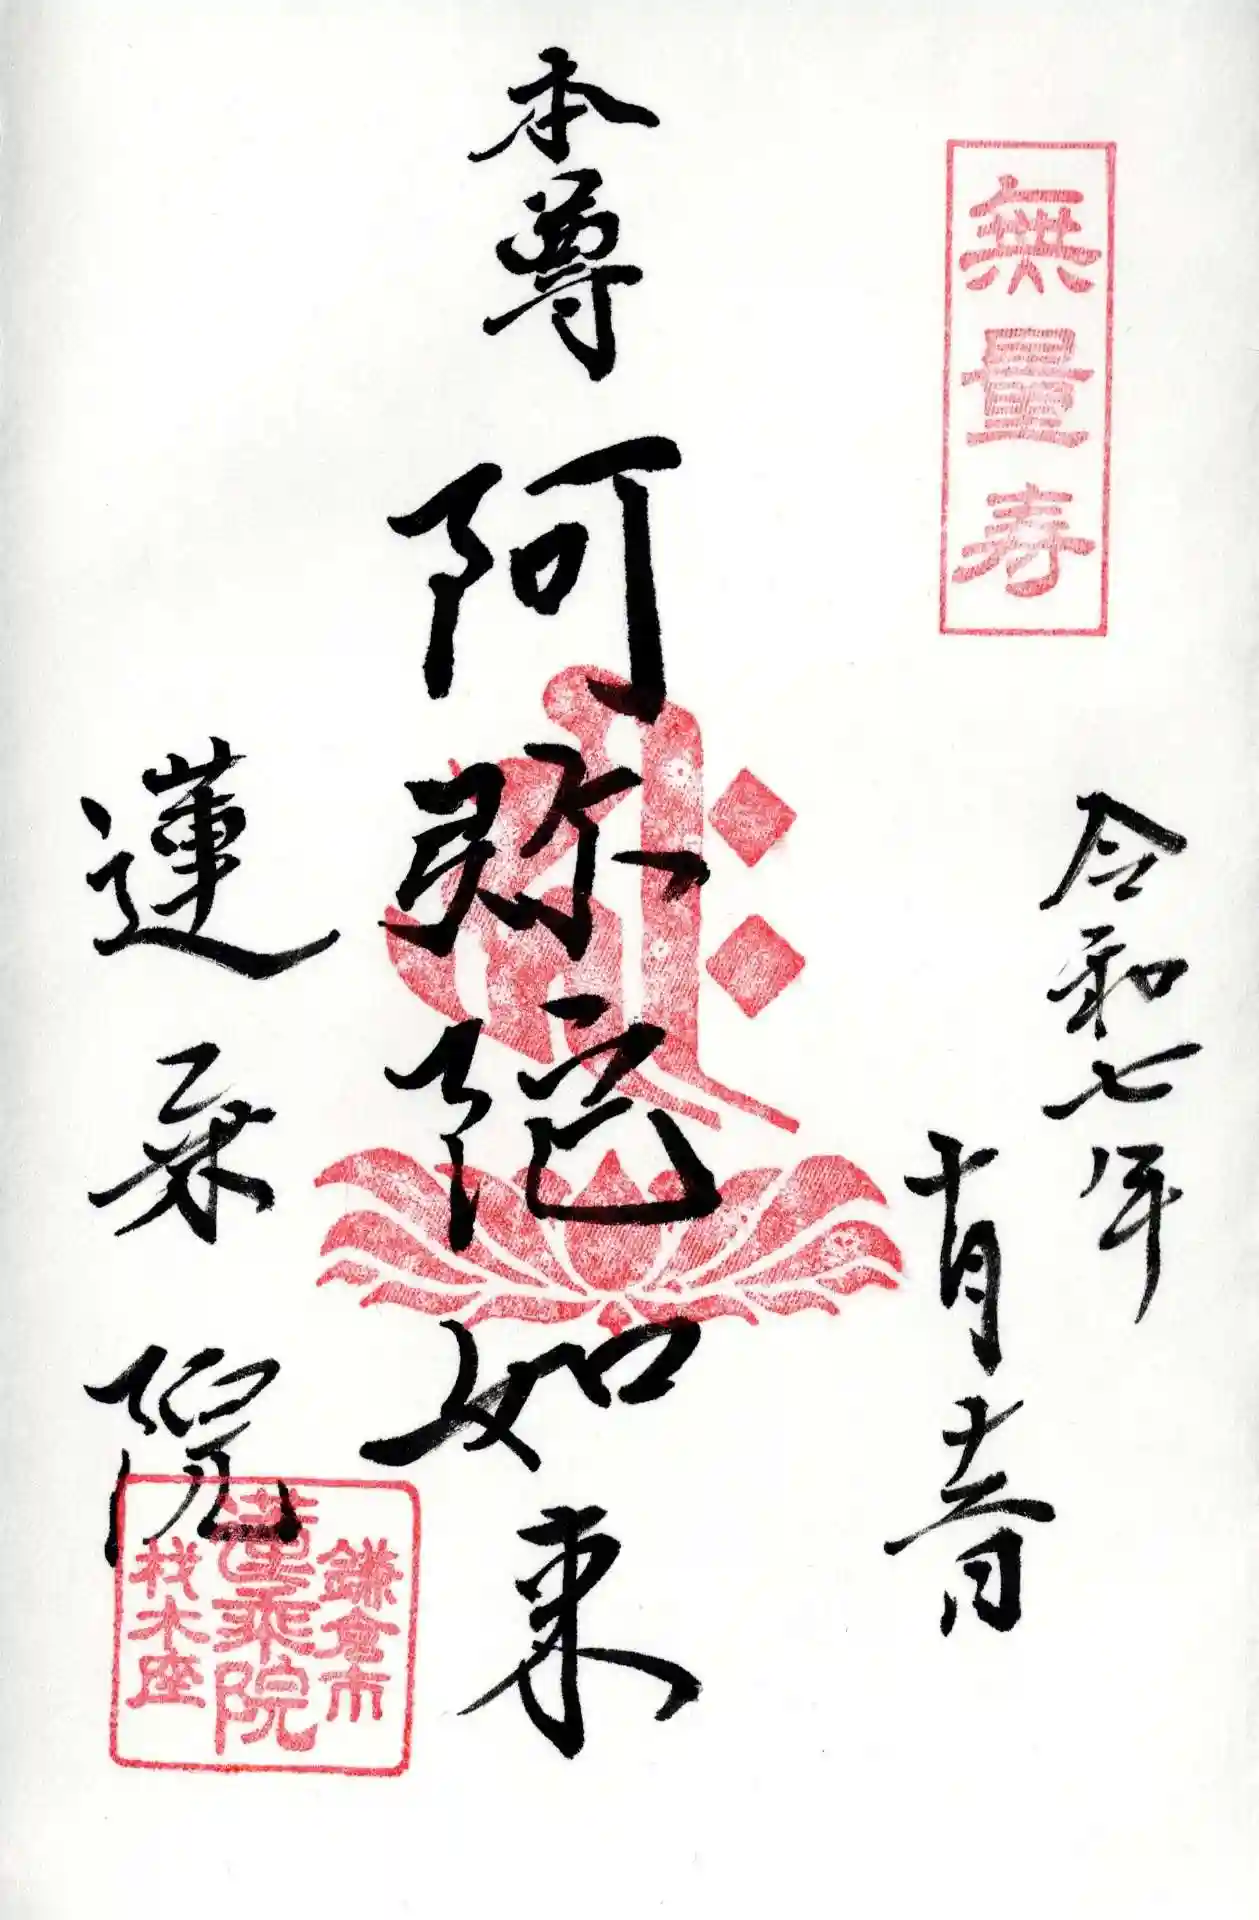 無量寿
令和七年
十月十六日
本尊 阿弥陀如来
蓮乗院
鎌倉市
蓮乗院
材木座